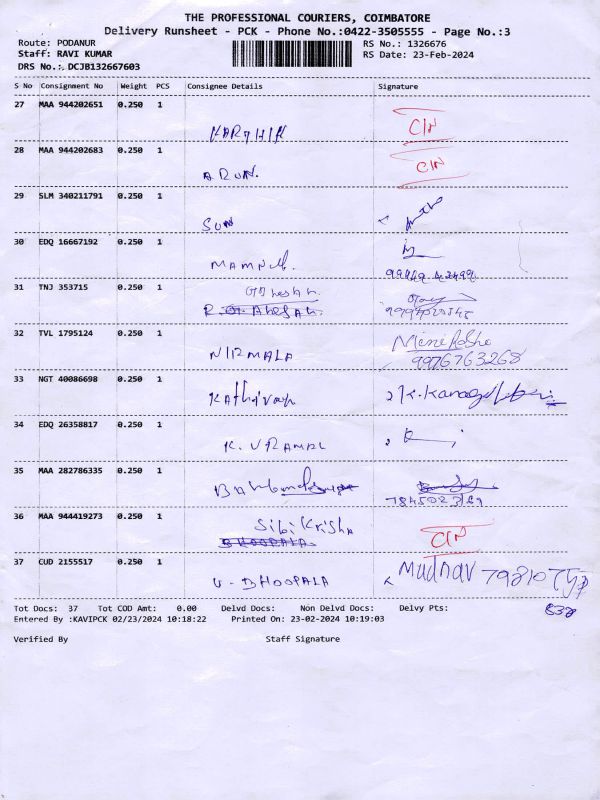 THE PROFESSIONAL COURIERS, COIMBATORE
Delivery Runsheet - PCK - Phone No.:0422-3505555 - Page No.:3
Route: PODANUR RS No.: 1326676
Staff: RAVI KUMAR RS Date: 23-Feb-2024
DRS No.: DCJB132667603
S No Consignment No Weight PCS Consignee Details Signature
27 MAA 944202651 0.250 1
KARTHIK C/N
28 MAA 944202683 0.250 1
ARUN. C/N
29 SLM 340211791 0.250 1
SUN
30 EDQ 16667192 0.250 1
31 TNJ 353715 0.250 1
32 TVL 1795124 0.250 1
NIRMALA 9976763268
33 NGT 40086698 0.250 1
34 EDQ 26358817 0.250 1
35 MAA 282786335 0.250 1
36 MAA 944419273 0.250 1
Sibi Krisha
BHOOPALA. C/N
37 CUD 2155517 0.250 1
V-BHOOPALA Madhav
Tot Docs: 37 Tot COD Amt: 0.00 Delvd Docs: Non Delvd Docs: Delvy Pts:
Entered By :KAVIPCK 02/23/2024 10:18:22 Printed On: 23-02-2024 10:19:03
Verified By Staff Signature